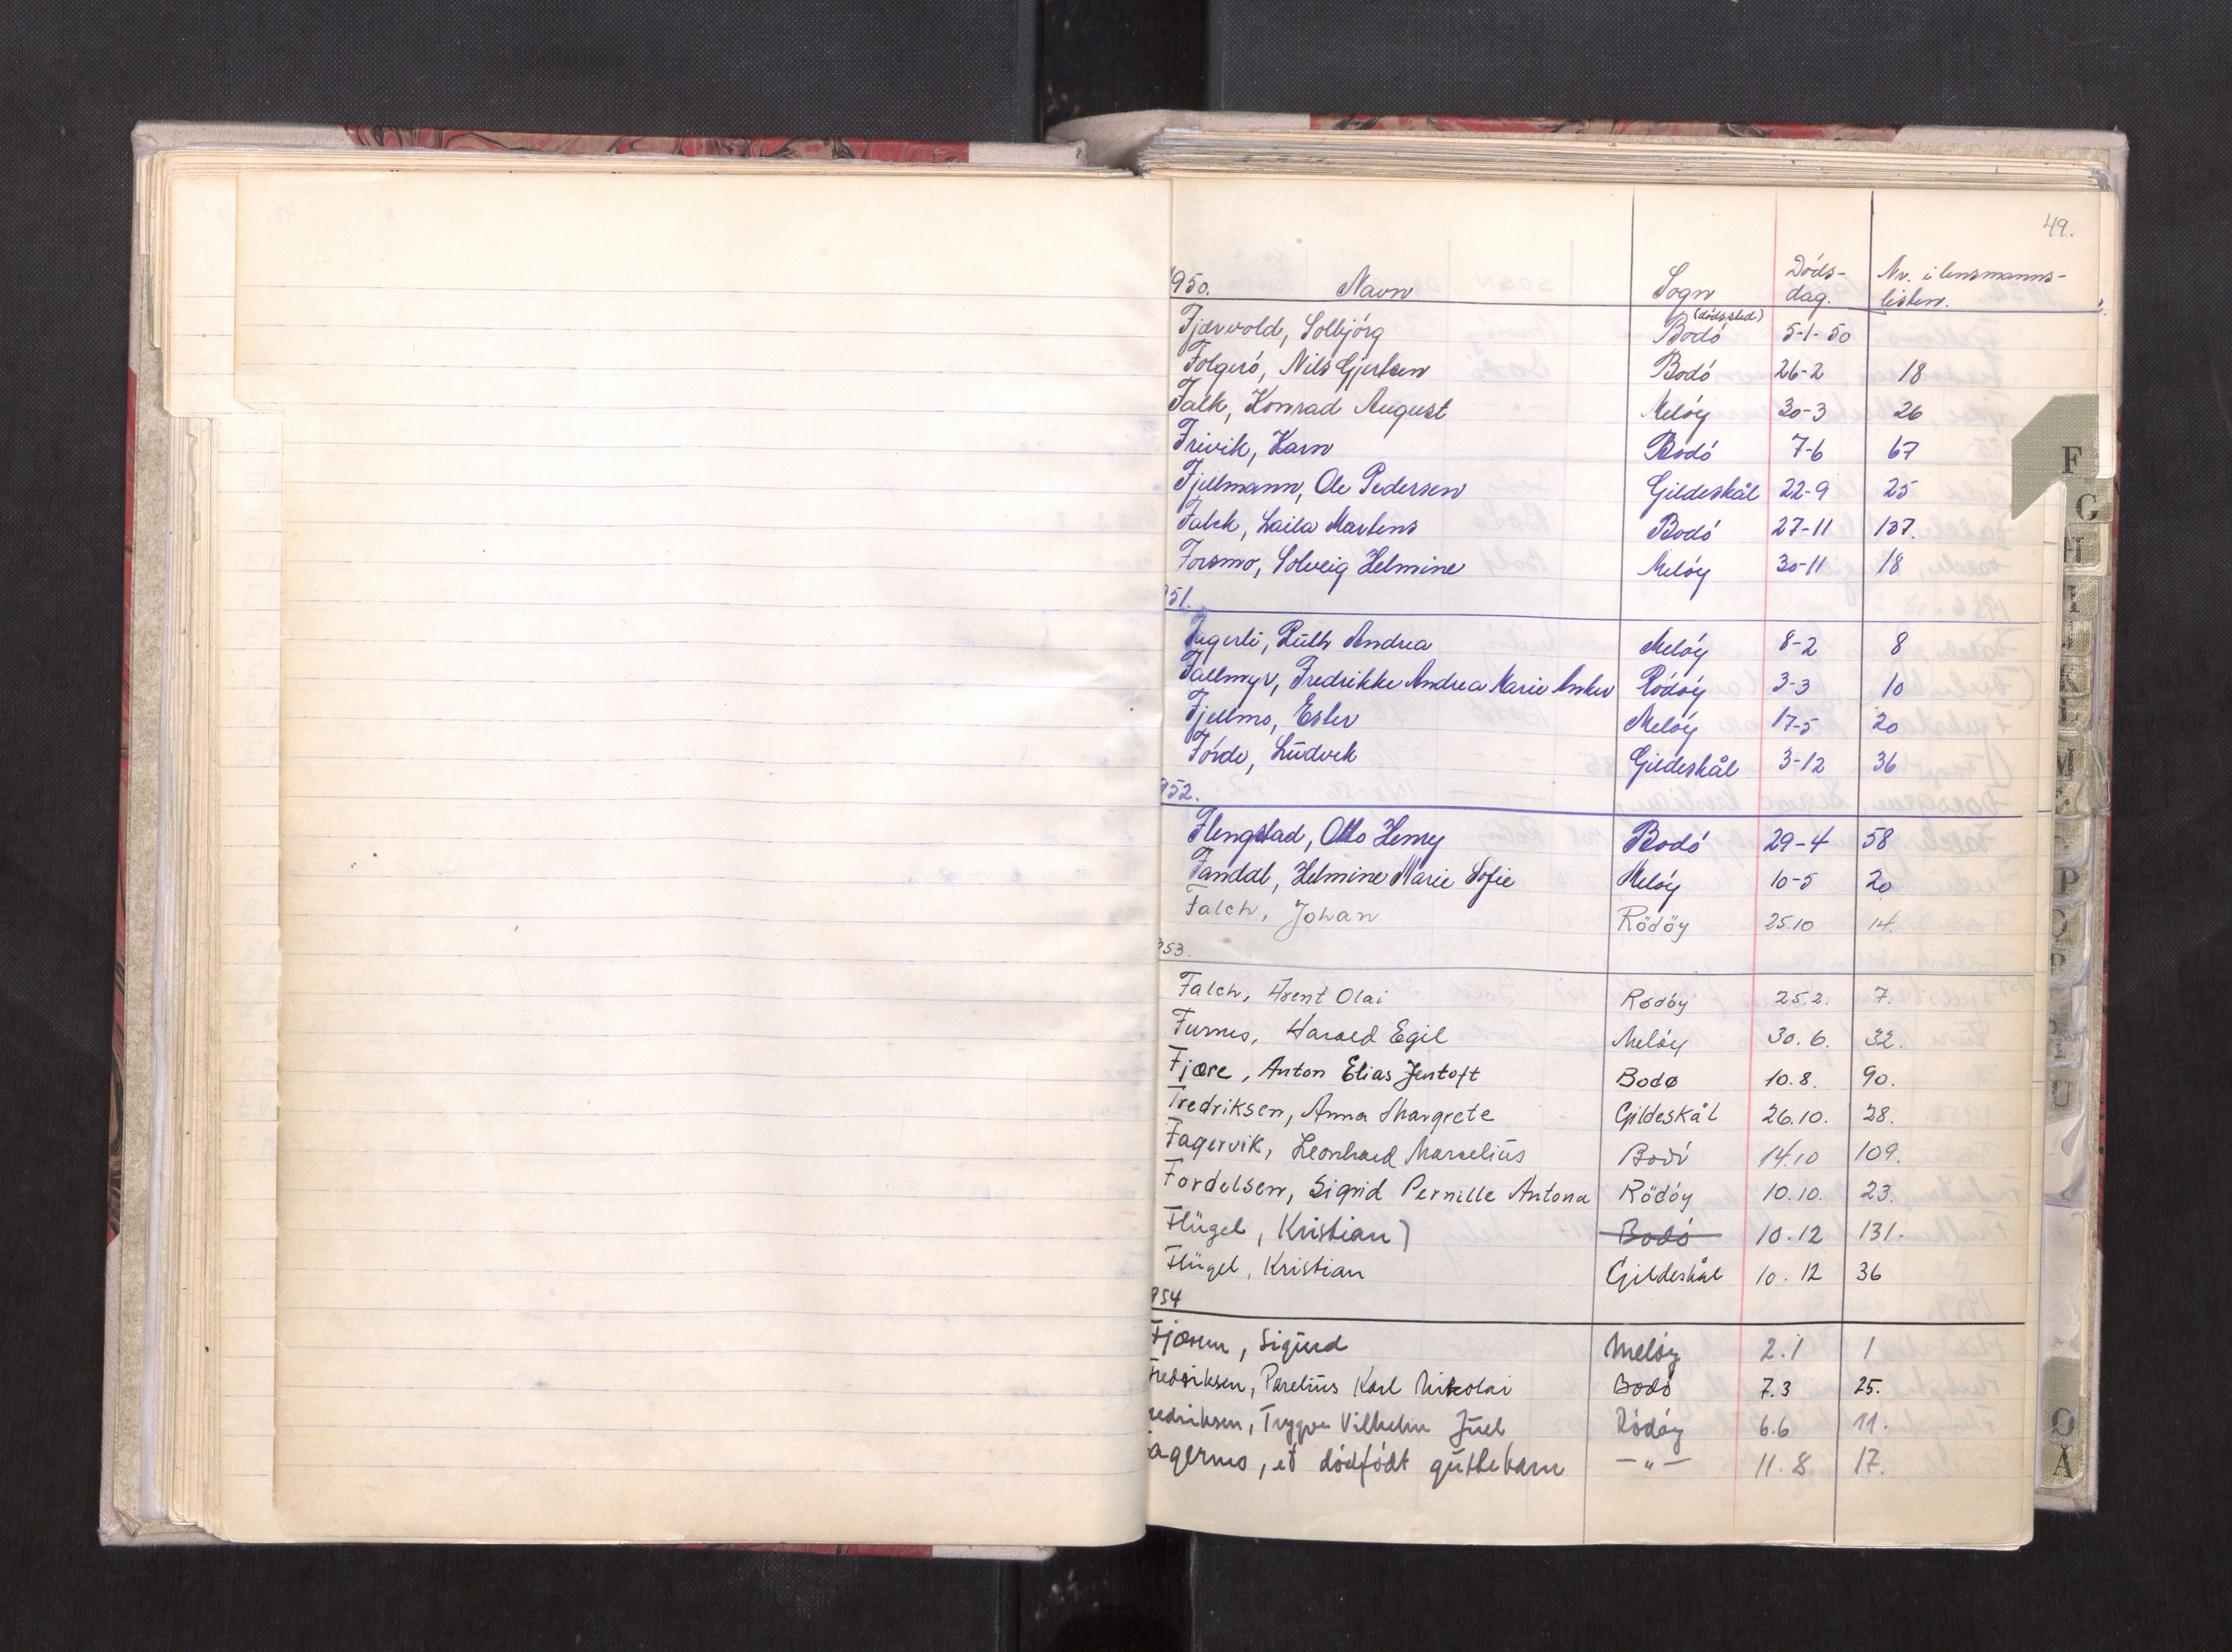 49.
1950. Navn Sogn Döds-dag. Nr. i lensmanns-listen.
(dödssted)
Fjærvold, Solbjörg Bodó 5-1-50
Folgeró, Nils Gjertsen Bodó 26-2 18
Falk, Konrad August Melóy 30-3 26
Frivik, Karn Bodó 7-6 67
Fjellmann, Ole Pedersen Gildeskål 22-9 25
Falck, Laila Martens Bodó 27-11 137.
Forsmo, Solveig Helmine Melóy 30-11 18
951.
Fagerli, Ruth Andrea Melóy 8-2 8
Fallmyr, Fredrikke Andrea Marie Anker Ródóy 3-3 10
Fjellmo, Ester Melóy 17-5 20
Förde, Ludvik Gildeskål 3-12 36
952.
Flengstad, Otto Henry Bodó 29-4 58
Fandal, Helmine Marie Sofie Melóy 10-5 20
Falch, Johan Rödöy 25.10 14.
953.
Falch, Arent Olai Rödóy 25.2. 7.
Furnes, Harald Egil Melóy 30.6. 32.
Fjære, Anton Elias Jentoft Bodø 10.8. 90.
Fredriksen, Anna Margrete Gildeskål 26.10. 28.
Fagervik, Leonhard Marselius Bodó 14.10 109.
Fordelsen, Sigrid Pernille Antona Ródóy 10.10. 23.
Flügel, Kristian) Bodó 10.12 131.
Flügel, Kristian Gildeskål 10.12 36
954
Fjærem, Sigurd Melóy 2.1 1
Fredriksen, Parelius Karl Nikolai Bodó 7.3 25.
redriksen, Trygve Vilhelm Juel Ródóy 6.6 11.
agermo, et dódfódt guttebarn —"— 11.8 17.
F
G
H
I
J
K
L
M
P
O
R
T
U
Ø
Å